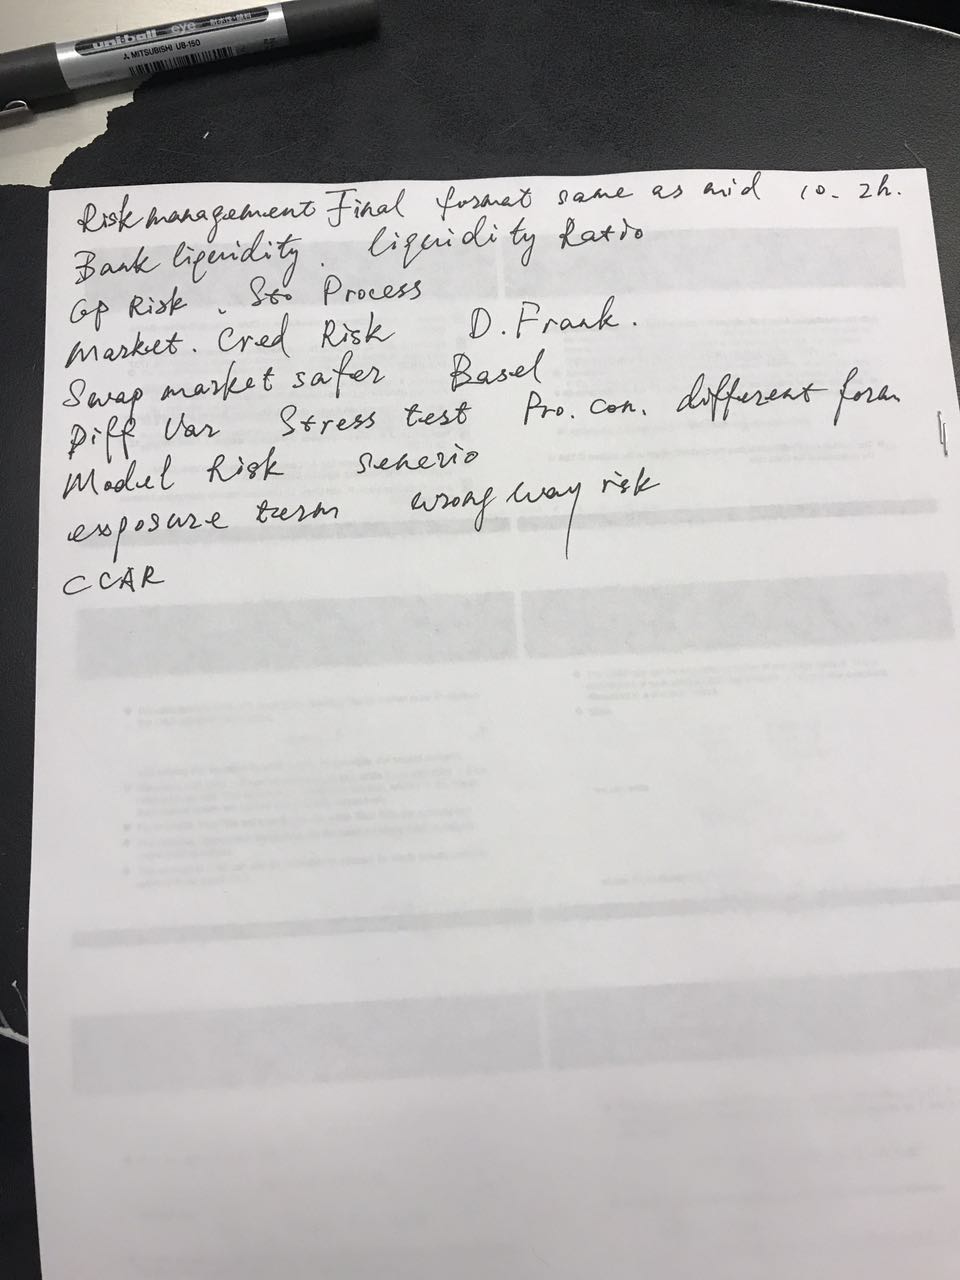 uni-ball eye
MITSUBISHI UB-150
Risk management Final format same as mid 10. 2h.
Bank liquidity. liquidity Ratio
Op Risk. Sto Process
Market. Cred Risk D. Frank.
Swap market safer Basel
Diff Var Stress test Pro. con. different form
Model Risk senerio
exposure term wrong way risk
CCAR